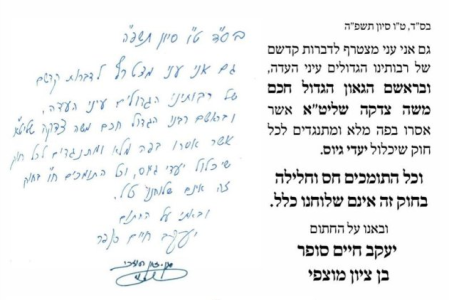 בס"ד ט"ו סיון תשפ"ה
גם אני עני מצטרף לדברות קדשם
של רבותינו הגדולים עיני העדה,
ובראשם רבנו הגדול חכם משה צדקה שליט"א
אשר אסרו בפה מלא ומתנגדים לכל חוק
שיכלול יעדי גיוס, וכל התומכים ח"ו בחוק
זה אינם שלוחנו כלל.
ובאתי על החתום
יעקב חיים סופר
בן ציון מוצפי
בס"ד, ט"ו סיון תשפ"ה
גם אני עני מצטרף לדברות קדשם
של רבותינו הגדולים עיני העדה,
ובראשם הגאון הגדול חכם
משה צדקה שליט"א אשר
אסרו בפה מלא ומתנגדים לכל
חוק שיכלול יעדי גיוס.
וכל התומכים חס וחלילה
בחוק זה אינם שלוחנו כלל.
ובאנו על החתום
יעקב חיים סופר
בן ציון מוצפי